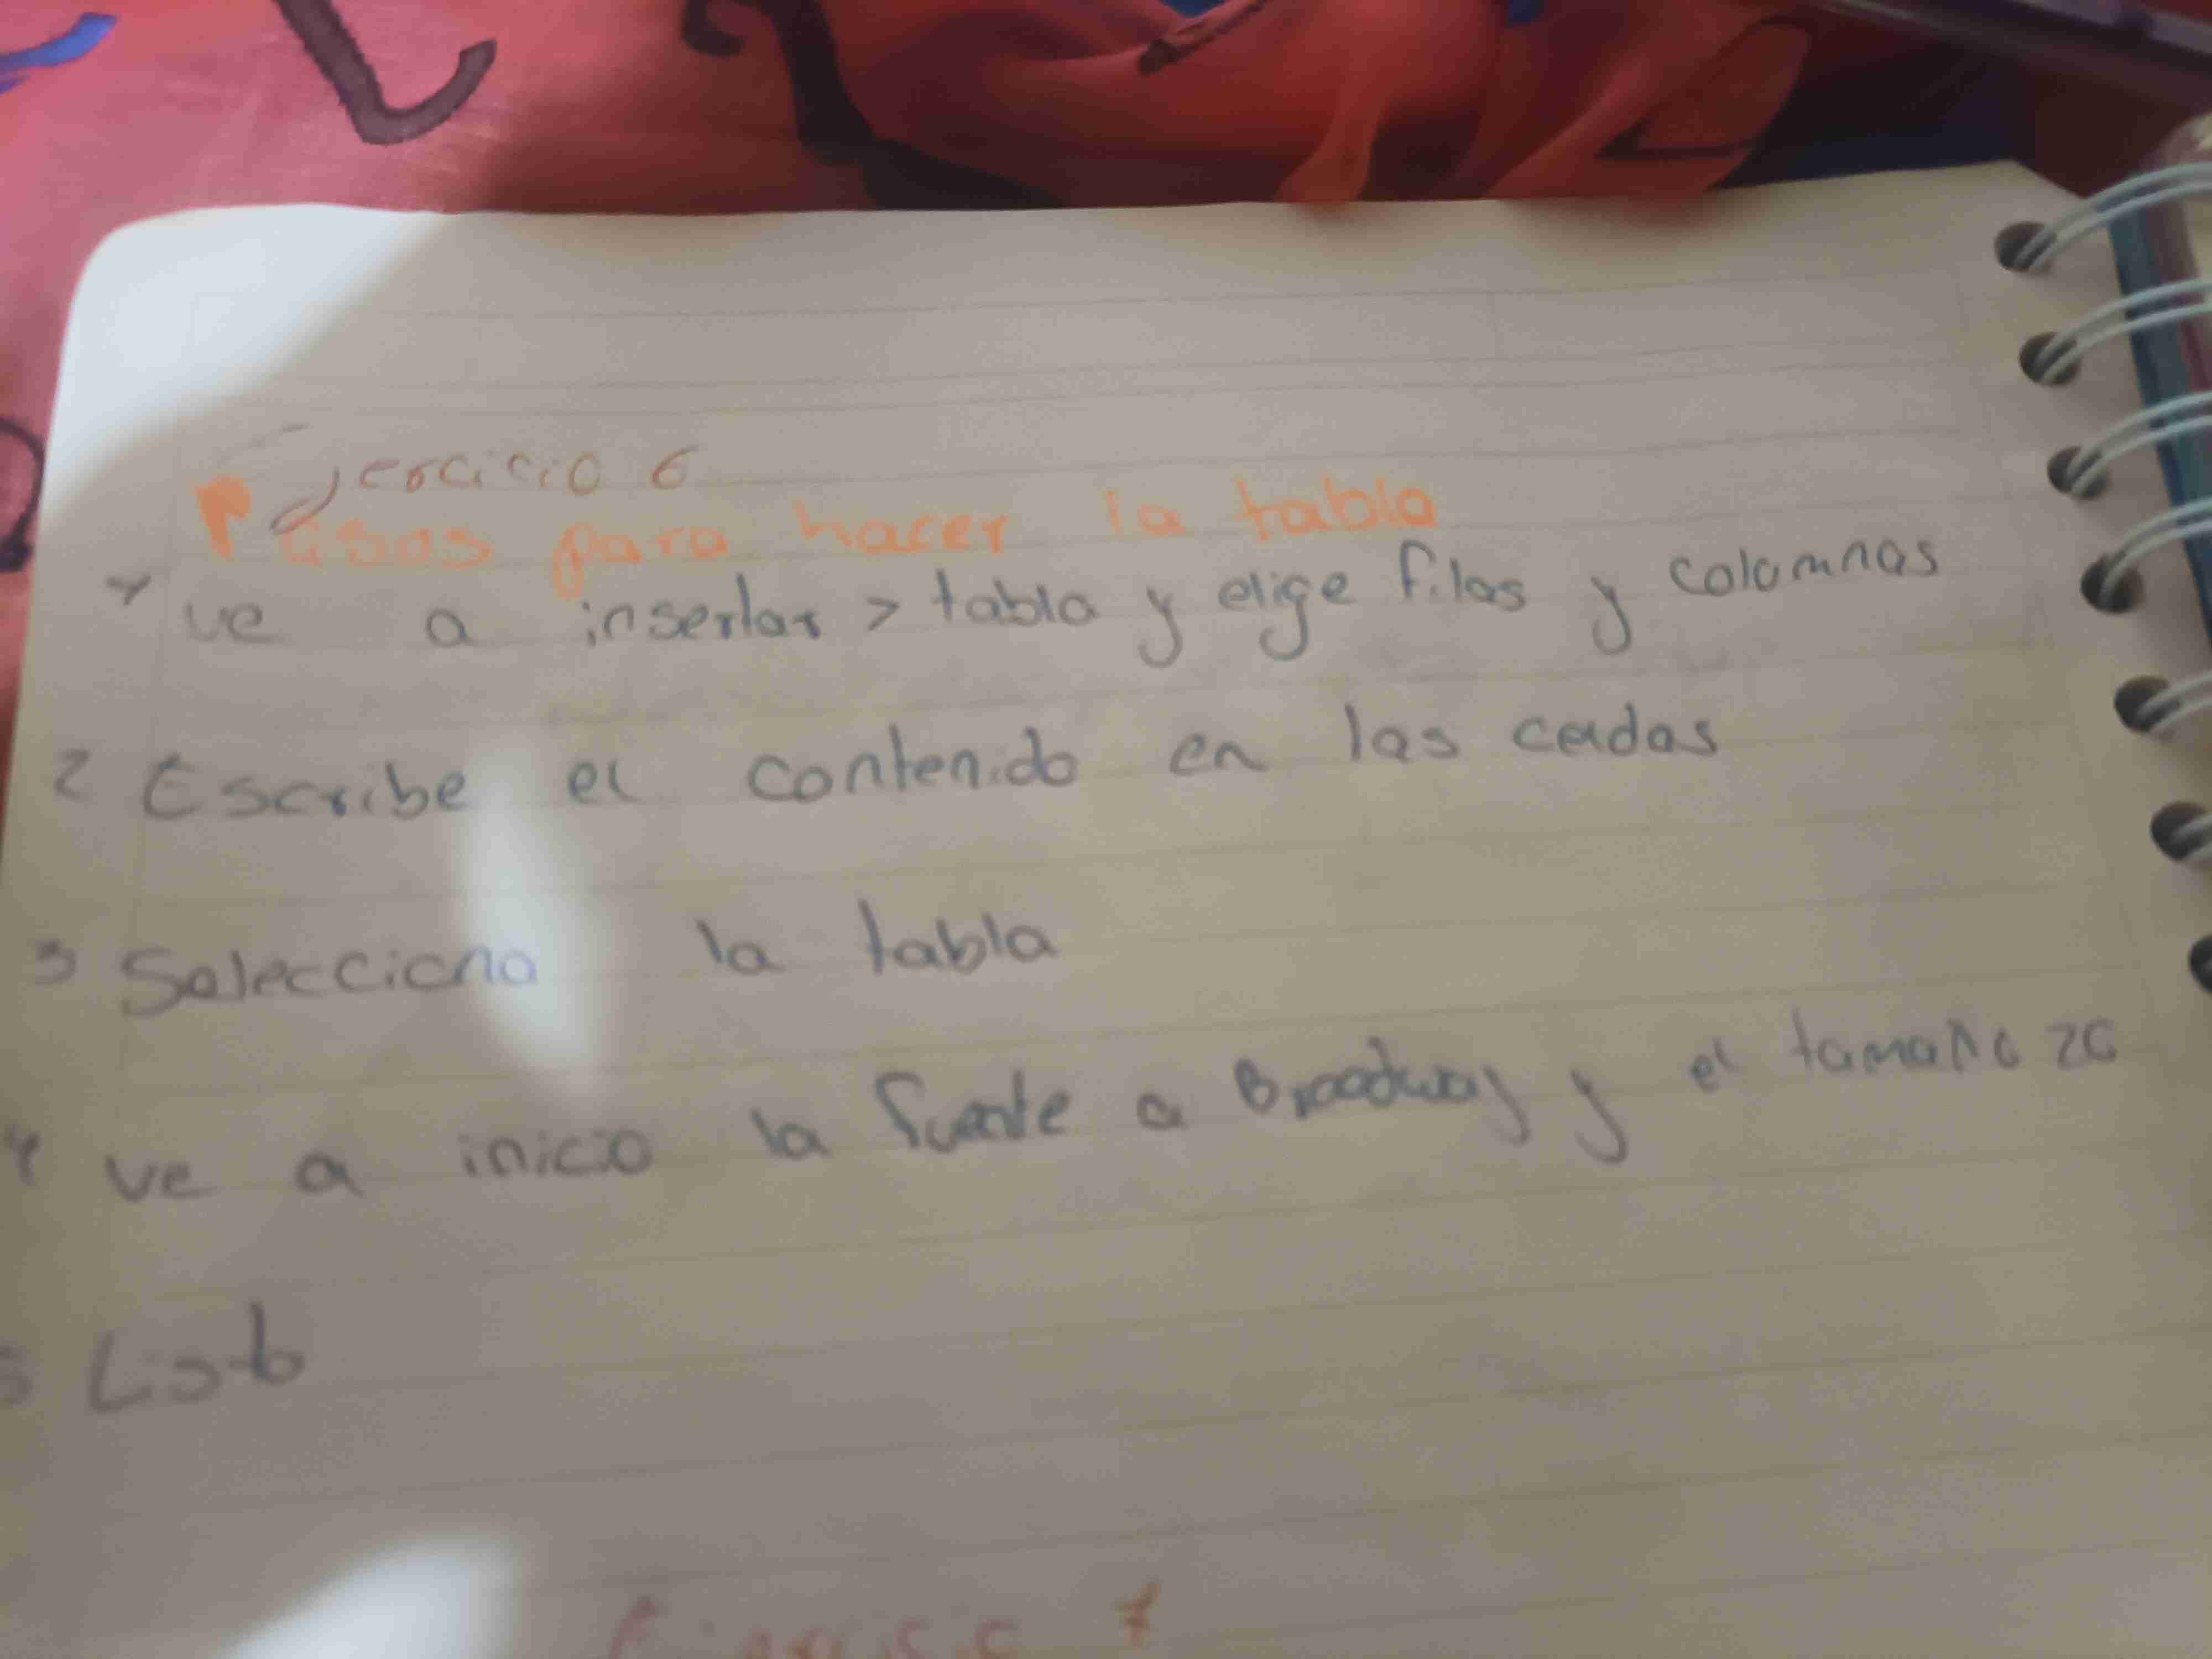 Ejercicio 6
Pasos para hacer la tabla
1 ve a insertar > tabla y elige filas y columnas
2 Escribe el contenido en las celdas
3 Selecciona la tabla
4 ve a inicio la fuente a Broadway y el tamaño 20
5 Listo
7